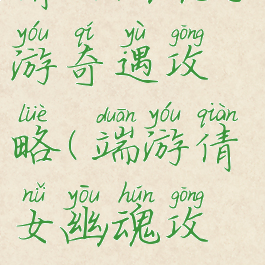 yóu qí yù gōng
游奇遇攻
lüè duān yóu qiàn
略(端游倩
nǚ yōu hún gōng
女幽魂攻